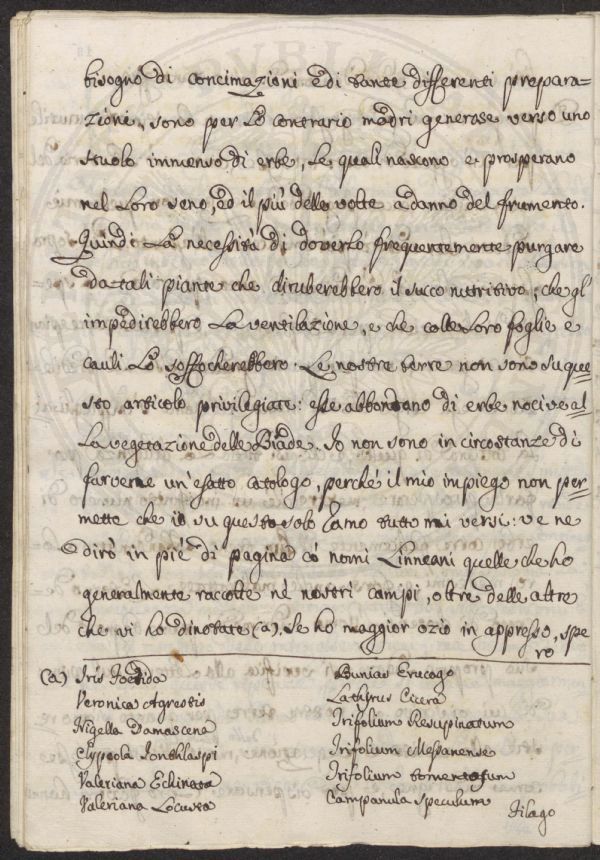 bisogno di concimazioni e di tante differenti prepara=
zioni, sono per lo contrario madri generose verso uno
stuolo immenso di erbe, le quali nascono e prosperano
nel loro seno, ed il più delle volte a danno del frumento.
Quindi la necessità di doverlo frequentemente purgare
da tali piante che diruberebbero il succo nutritivo, che gl'
impedirebbero la ventilazione, e che colle loro foglie e
cauli lo soffocherebbero. Le nostre terre non sono su que=
sto articolo privilegiate: esse abbondano di erbe nocive al=
la vegetazione delle Biade. Io non sono in circostanze di
farvene un'esatto catologo, perché il mio impiego non per=
mette che io su questo solo ramo tutto mai versi: ve ne
dirò in piè di pagina co' nomi Linneani quelle che ho
generalmente raccolte ne' nostri campi, oltre delle altre
che vi ho dinotate (a). Se ho maggior ozio in appresso, spe
ro
(a) Iris Foetida
Veronica Agrestis
Nigella Damascena
Clypeola Jonthlaspi
Valeriana Echinata
Valeriana Locusta
Bunias Erucago
Lathyrus Cicera
Trifolium Resupinatum
Trifolium Messanense
Trifolium tomentosum
Campanula Speculum
Filago